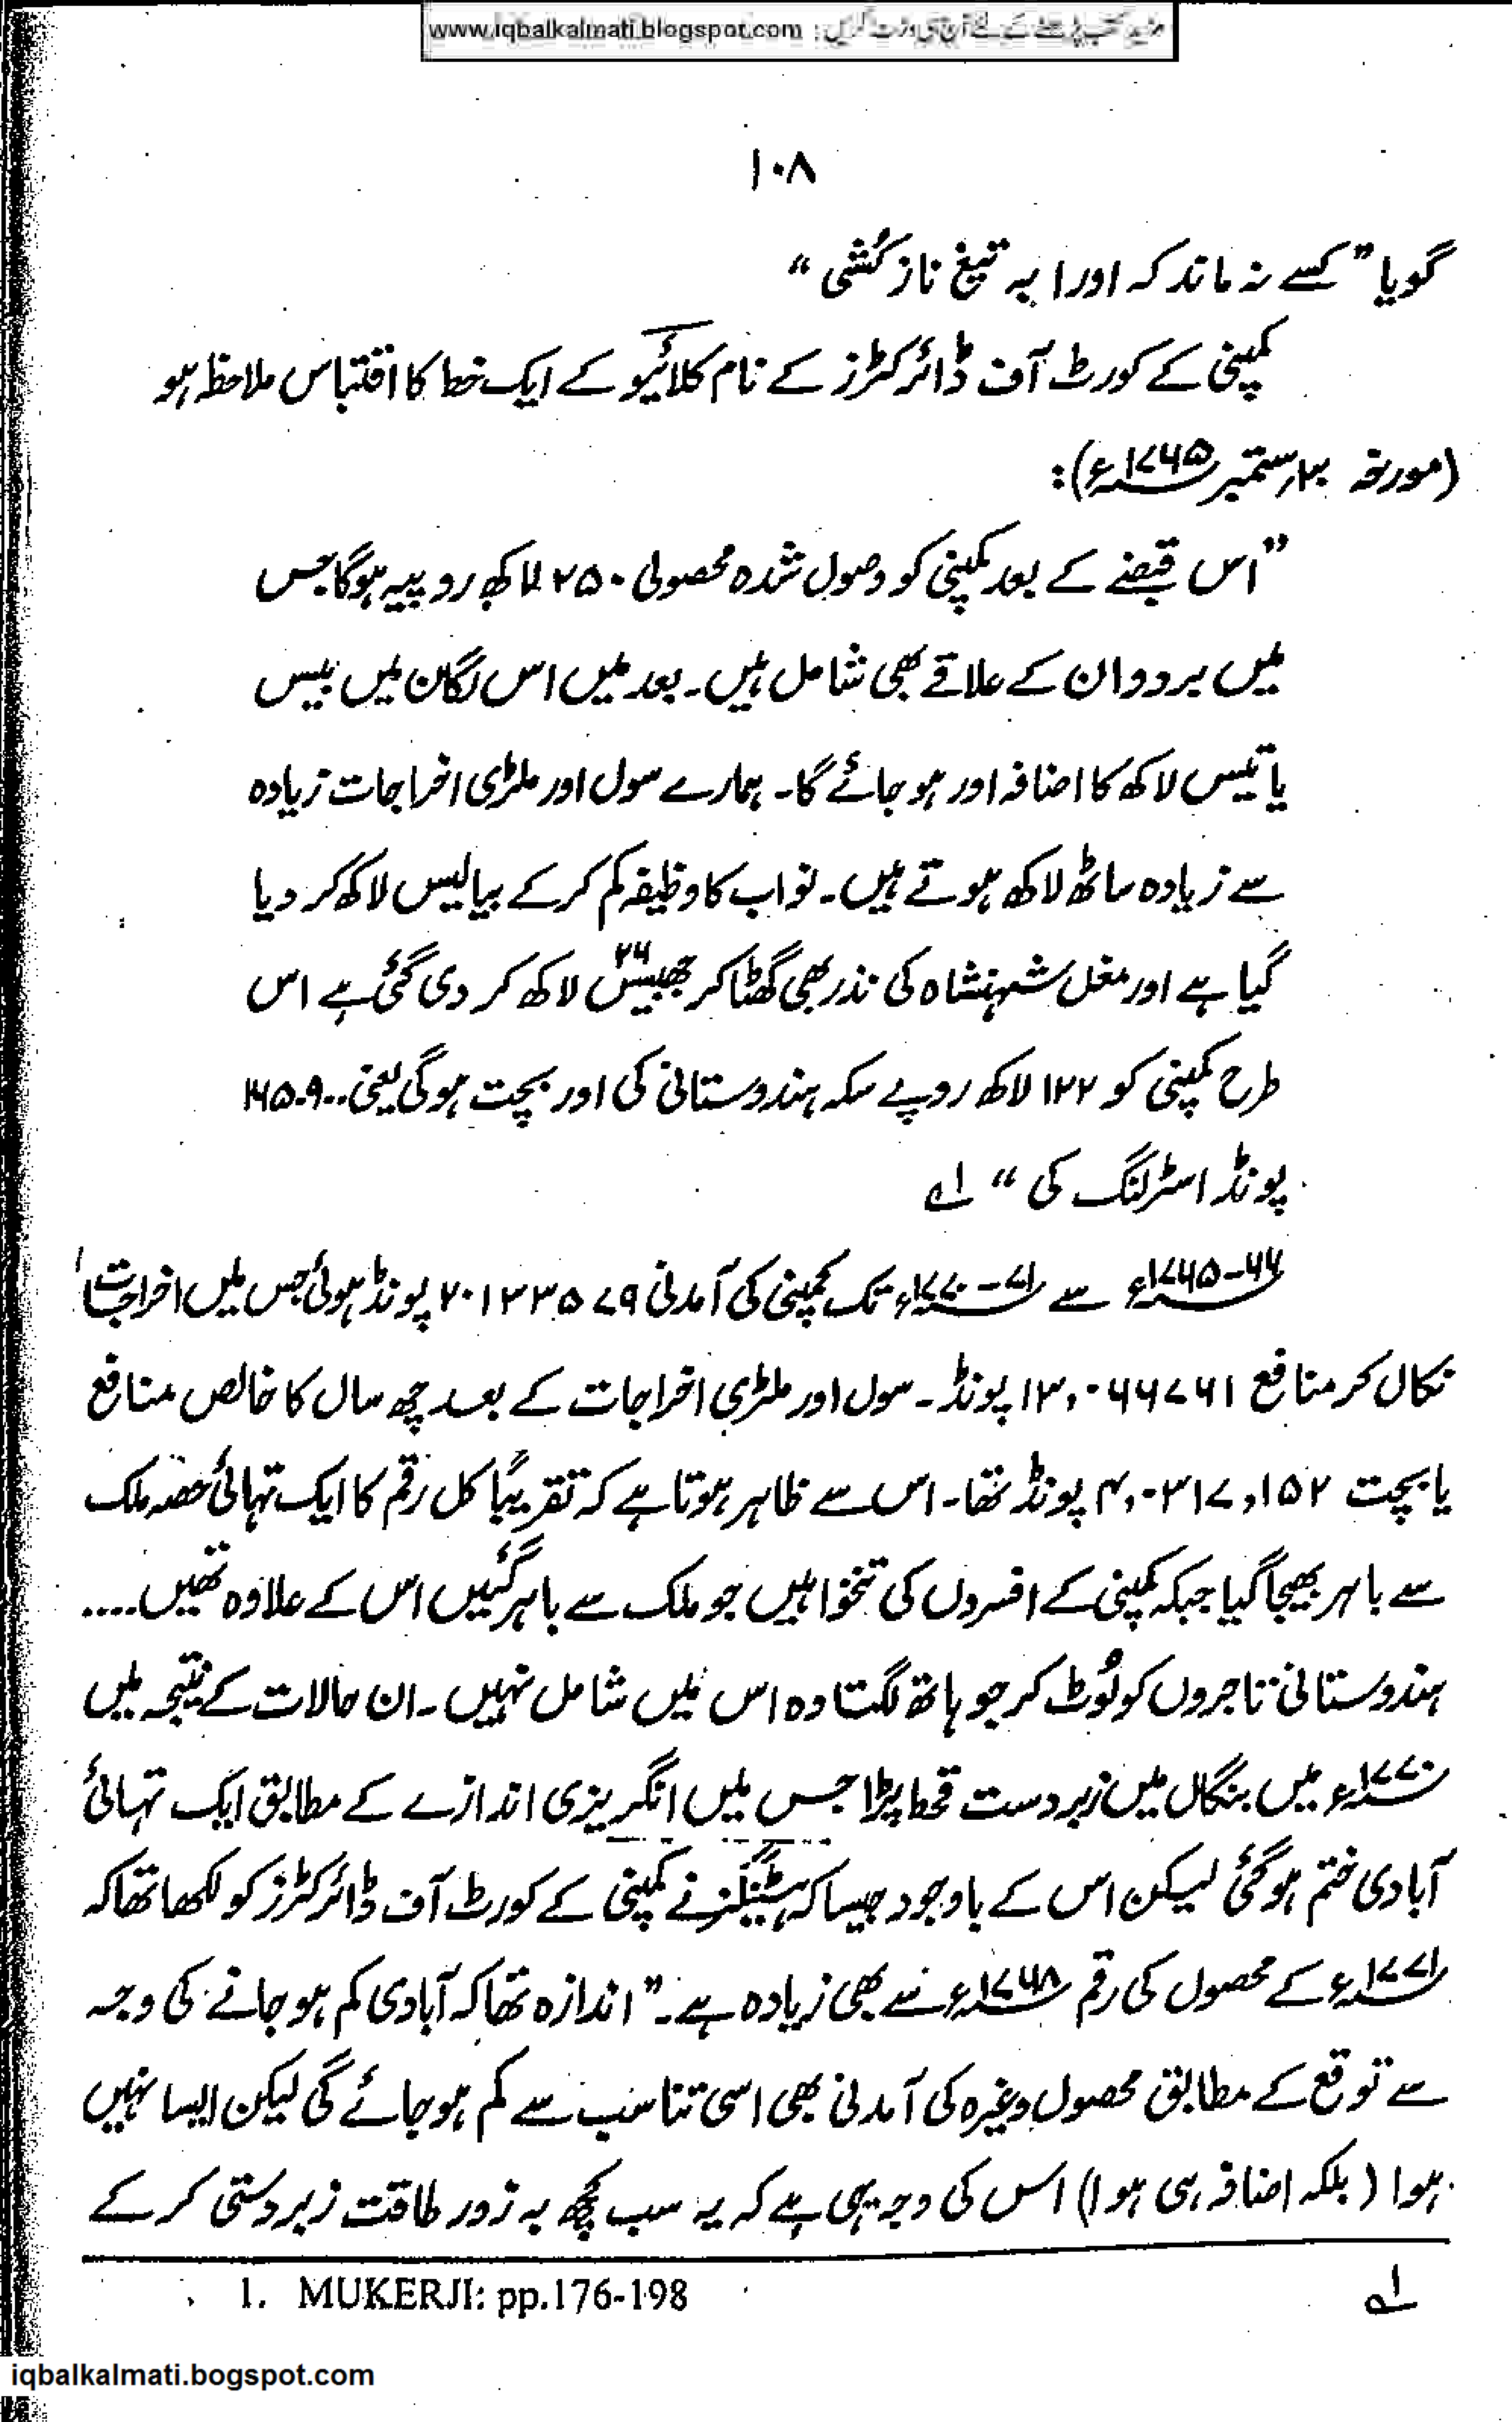 www.iqbalkalmati.blogspot.com : مزید کتب پڑھنے کے لئے آج ہی وزٹ کریں
۱۰۸
گویا ”کسے نہ ماند کہ اورا بہ تیغ ناز کُشی“
کمپنی کے کورٹ آف ڈائرکٹرز کے نام کلائیو کے ایک خط کا اقتباس ملاحظہ ہو
(مورخہ ۳۰؍ستمبر ۱۷۶۵ء):
”اس قبضے کے بعد کمپنی کو وصول شدہ محصولی ۲۵۰ لاکھ روپیہ ہوگا جس
میں بردوان کے علاقے بھی شامل ہیں۔ بعد میں اس لگان میں بیس
یا تیس لاکھ کا اضافہ اور ہو جائے گا۔ ہمارے سول اور ملٹری اخراجات زیادہ
سے زیادہ ساٹھ لاکھ ہوتے ہیں۔ نواب کا وظیفہ کم کرکے بیالیس لاکھ کر دیا
گیا ہے اور مغل شہنشاہ کی نذر بھی گھٹا کر چھبیس ۲۶ لاکھ کر دی گئی ہے اس
طرح کمپنی کو ۱۲۲ لاکھ روپے سکہ ہندوستانی کی اور بچت ہوگی یعنی
پونڈ اسٹرلنگ کی“ ۱ے
۱۷۶۵-۶۶ء سے ۱۷۷۰-۷۱ء تک کمپنی کی آمدنی ۲۰۱۳۳۵۷۹ پونڈ ہوئی جس میں اخراجات
نکال کر منافع ۱۳,۰۶۶۷۶۱ پونڈ۔ سول اور ملٹری اخراجات کے بعد چھ سال کا خالص منافع
یا بچت ۴,۰۳۱۷,۱۵۲ پونڈ تھا۔ اس سے ظاہر ہوتا ہے کہ تقریباً کل رقم کا ایک تہائی حصہ ملک
سے باہر بھیجا گیا جبکہ کمپنی کے افسروں کی تنخواہیں جو ملک سے باہر گئیں اس کے علاوہ تھیں....
ہندوستانی تاجروں کو لُوٹ کر جو ہاتھ لگتا وہ اس میں شامل نہیں۔ ان حالات کے نتیجہ میں
۱۷۷۰ء میں بنگال میں زبردست قحط پڑا جس میں انگریزی اندازے کے مطابق ایک تہائی
آبادی ختم ہوگئی لیکن اس کے باوجود جیسا کہ ہیٹنگز نے کمپنی کے کورٹ آف ڈائرکٹرز کو لکھا تھا کہ
۱۷۷۱ء کے محصول کی رقم ۱۷۶۸ء سے بھی زیادہ ہے۔” اندازہ تھا کہ آبادی کم ہو جانے کی وجہ
سے توقع کے مطابق محصول وغیرہ کی آمدنی بھی اسی تناسب سے کم ہو جائے گی لیکن ایسا نہیں
ہوا (بلکہ اضافہ ہی ہوا) اس کی وجہ یہی ہے کہ یہ سب کچھ بہ زور طاقت زبردستی کر کے
۱ے 1. MUKERJI: pp.176-198
iqbalkalmati.bogspot.com